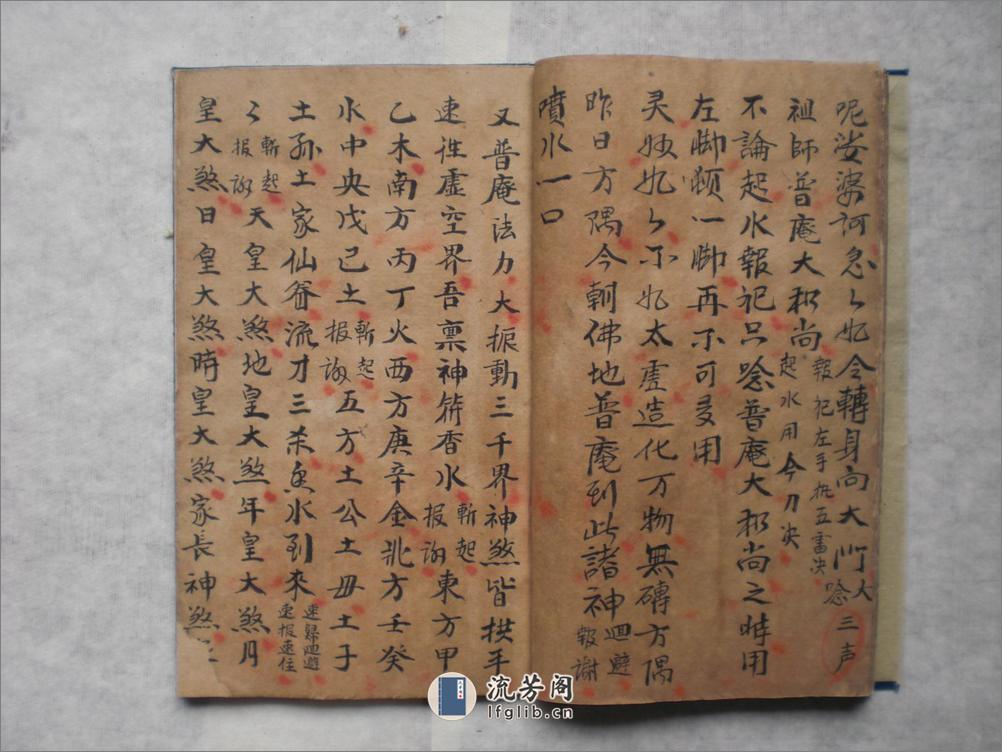 呢娑婆訶急々如令轉身向大門大唸三声
祖師普庵大和尚報祀左手执五雷决起水用令刀决
不論起水報祀只唸普庵大和尚之時用
左脚頓一脚再不可多用
灵如々不太虚造化万物無磚方隅
昨日方隅今朝佛地普庵到此諸神迴避報謝
噴水一口
又普庵法力大振動三千界神煞皆拱手
速往虚空界吾稟神符香水斬起报谢東方甲
乙木南方丙丁火西方庚辛金北方壬癸
水中央戊己土斬起报谢五方土公土毋土子
土孫土家仙眷流才三杀急水到來速歸迴避速报速住
々斬起报谢天皇大煞地皇大煞年皇大煞月
皇大煞日皇大煞時皇大煞家長神煞
流芳阁
lfglib.cn